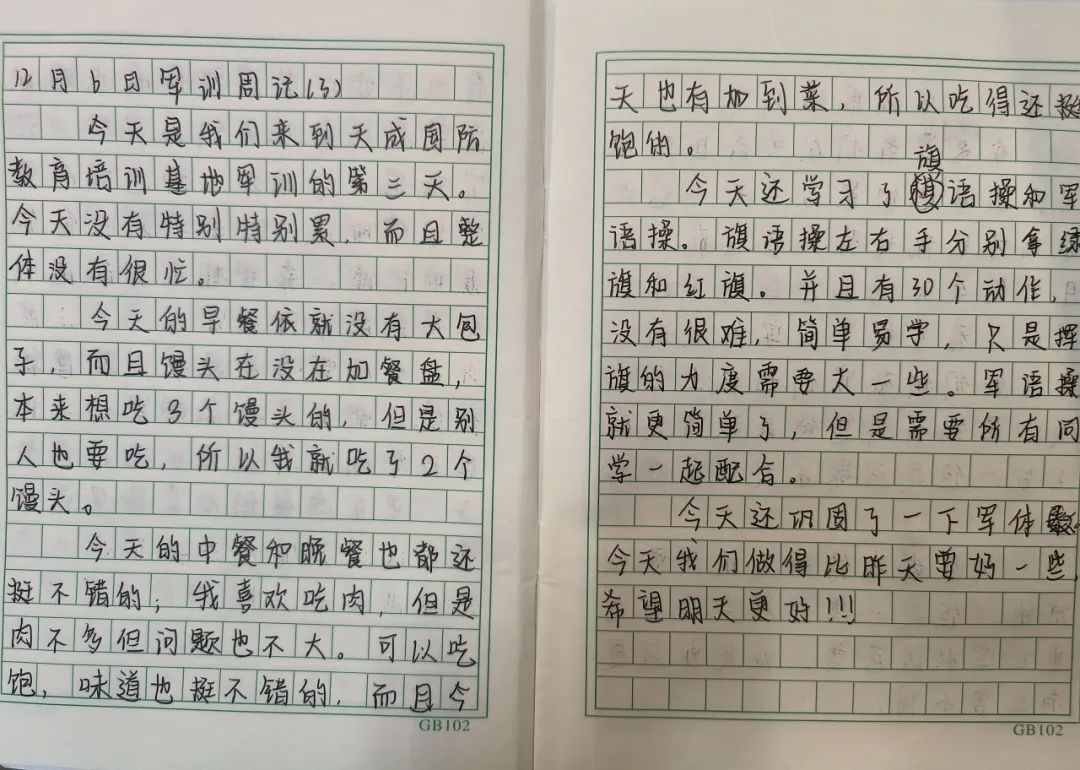 12月6日军训周记(3)
今天是我们来到天成国防
教育培训基地军训的第三天。
今天没有特别特别累，而且整
体没有很忙。
今天的早餐依就没有大包
子，而且馒头在没在加餐盘，
本来想吃3个馒头的，但是别
人也要吃，所以我就吃了2个
馒头。
今天的中餐和晚餐也都还
挺不错的；我喜欢吃肉，但是
肉不多但问题也不大。可以吃
饱，味道也挺不错的，而且今
GB102
天也有加到菜，所以吃得还挺
饱的。
旗
今天还学习了语操和军
语操。旗语操左右手分别拿绿
旗和红旗。并且有30个动作，
没有很难，简单易学，只是挥
旗的力度需要大一些。军语操
就更简单了，但是需要所有同
学一起配合。
今天还巩固了一下军体
今天我们做得比昨天要好一些，
希望明天更好!!!
GB102